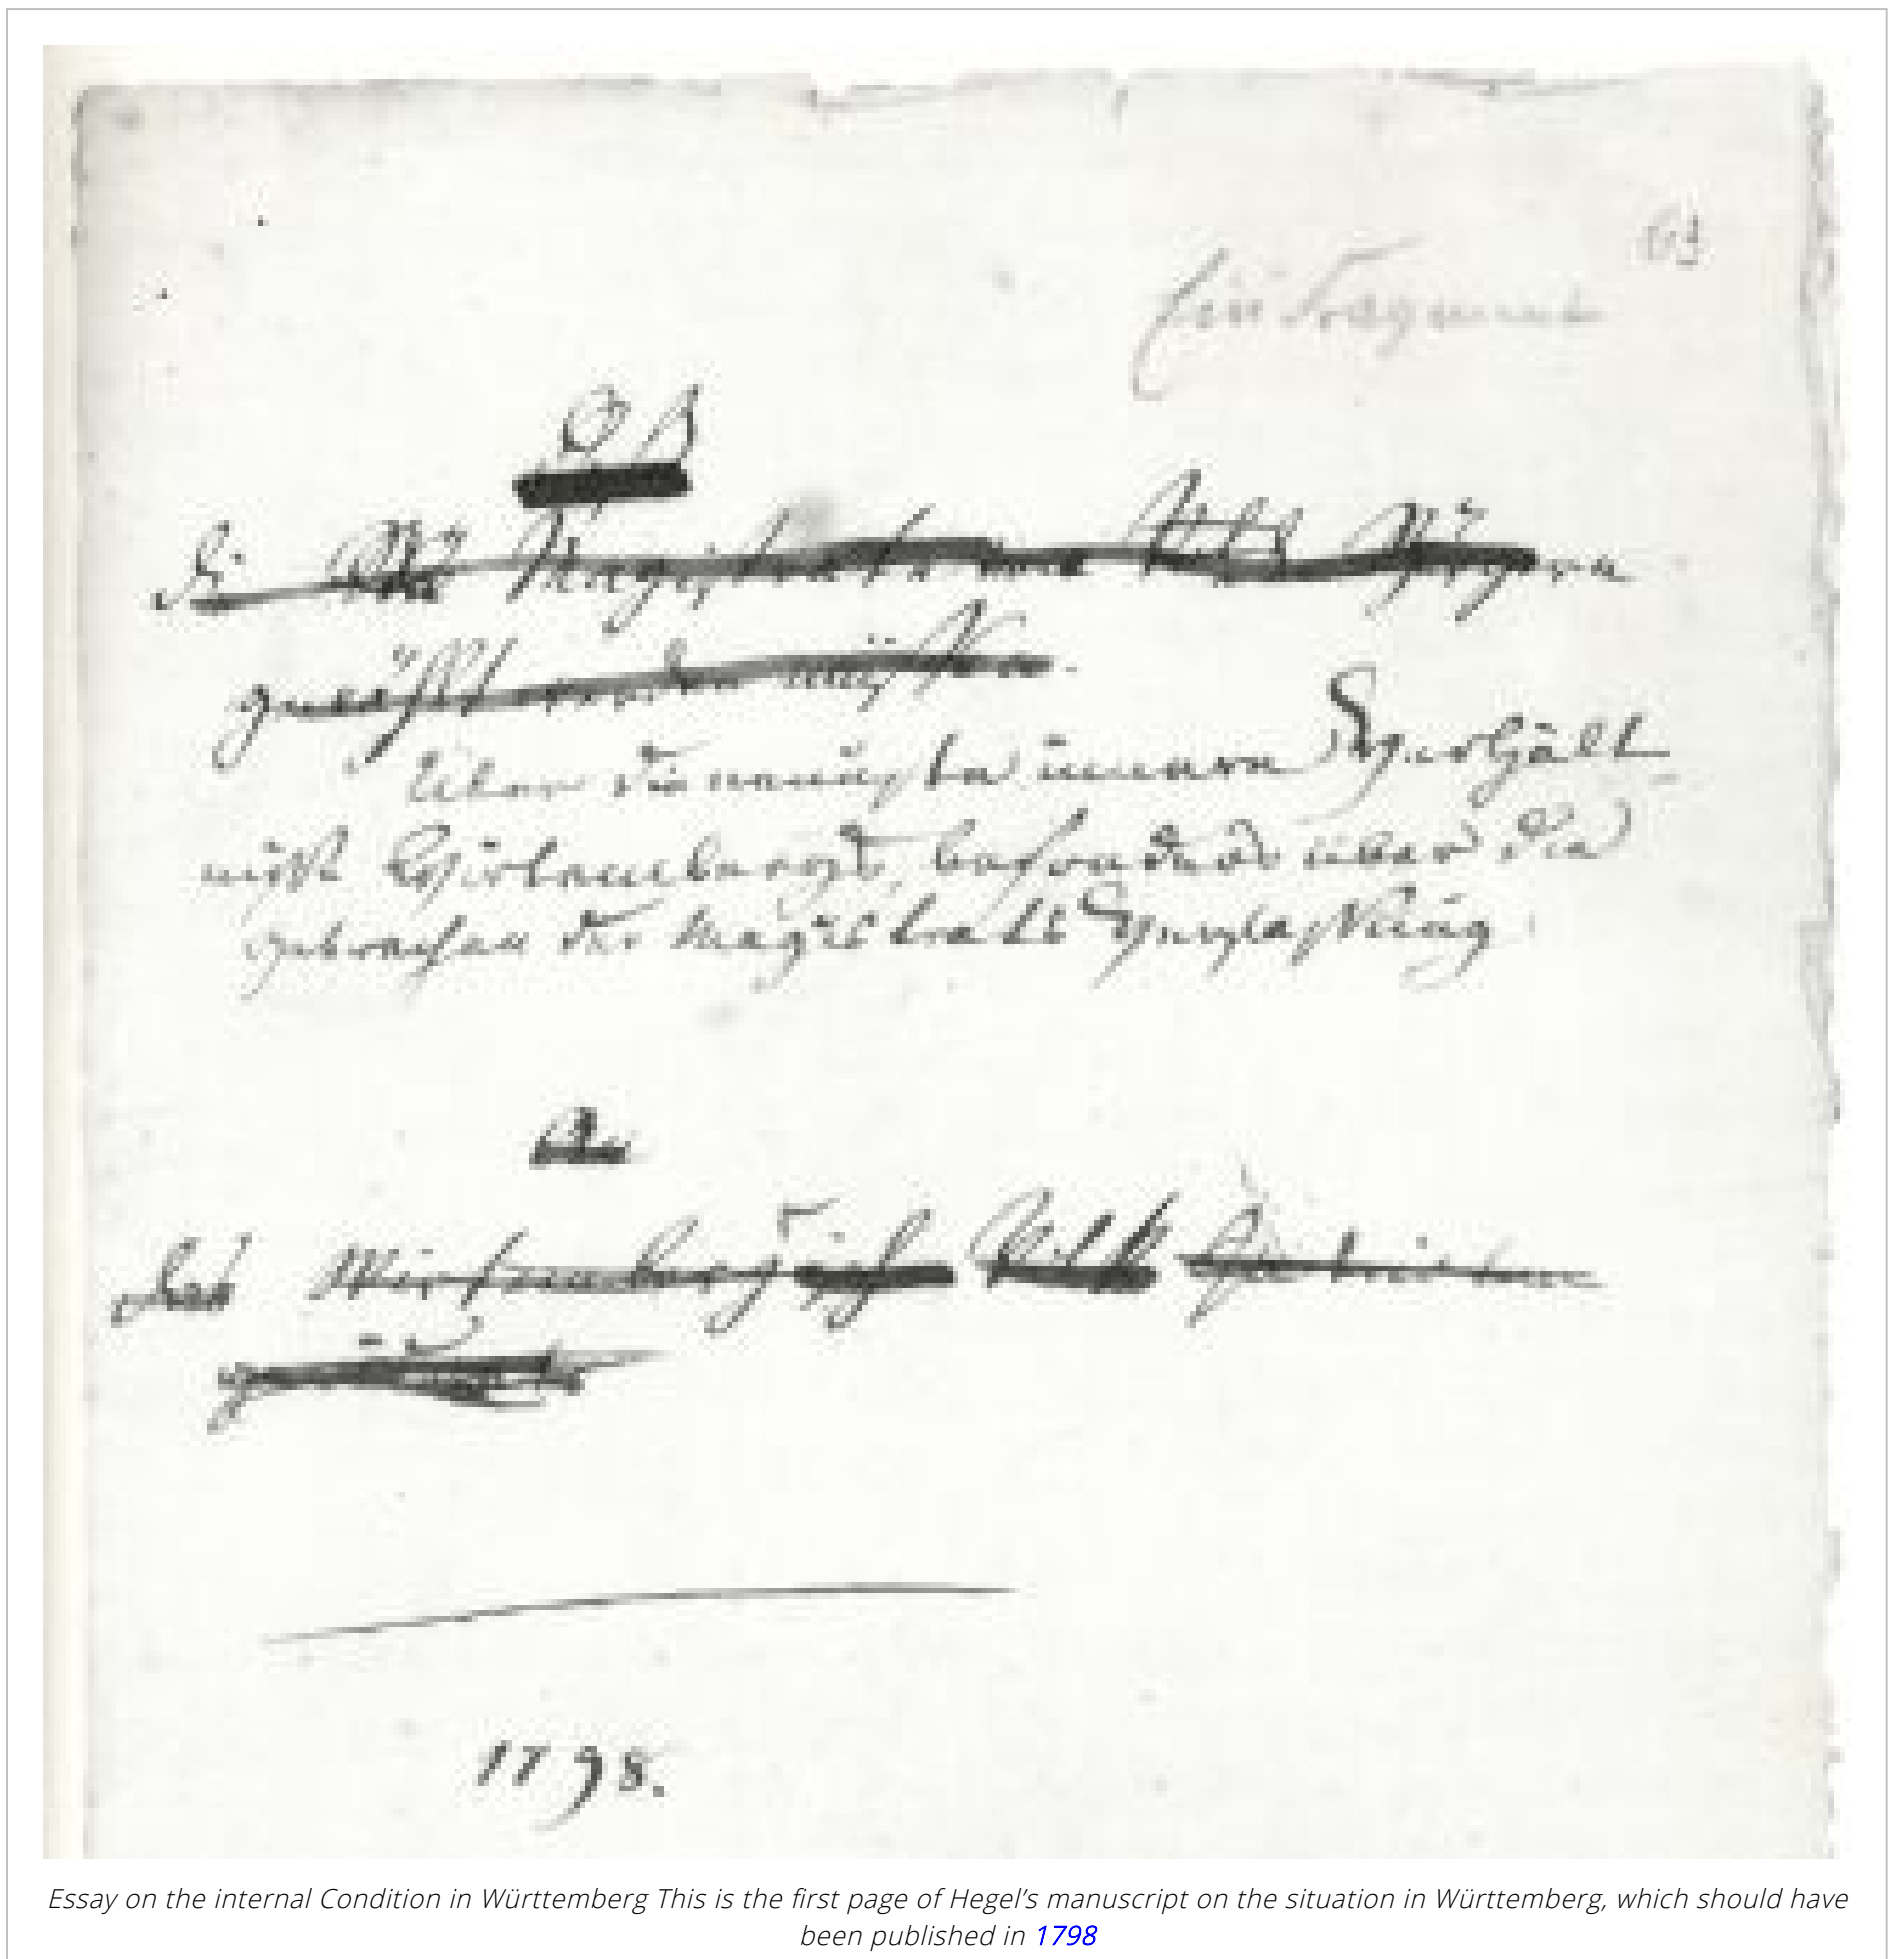 Ein Fragment
Daß
die Magistrate von Volk Bürgern
gewählt werden müssen.
Über die neuesten innern Verhält-
nisse Wirtembergs, besonders über die
Gebrechen der Magistratsverfassung.
An
das Wirtembergische Volk
1798.
Essay on the internal Condition in Württemberg This is the first page of Hegel’s manuscript on the situation in Württemberg, which should have
been published in 1798